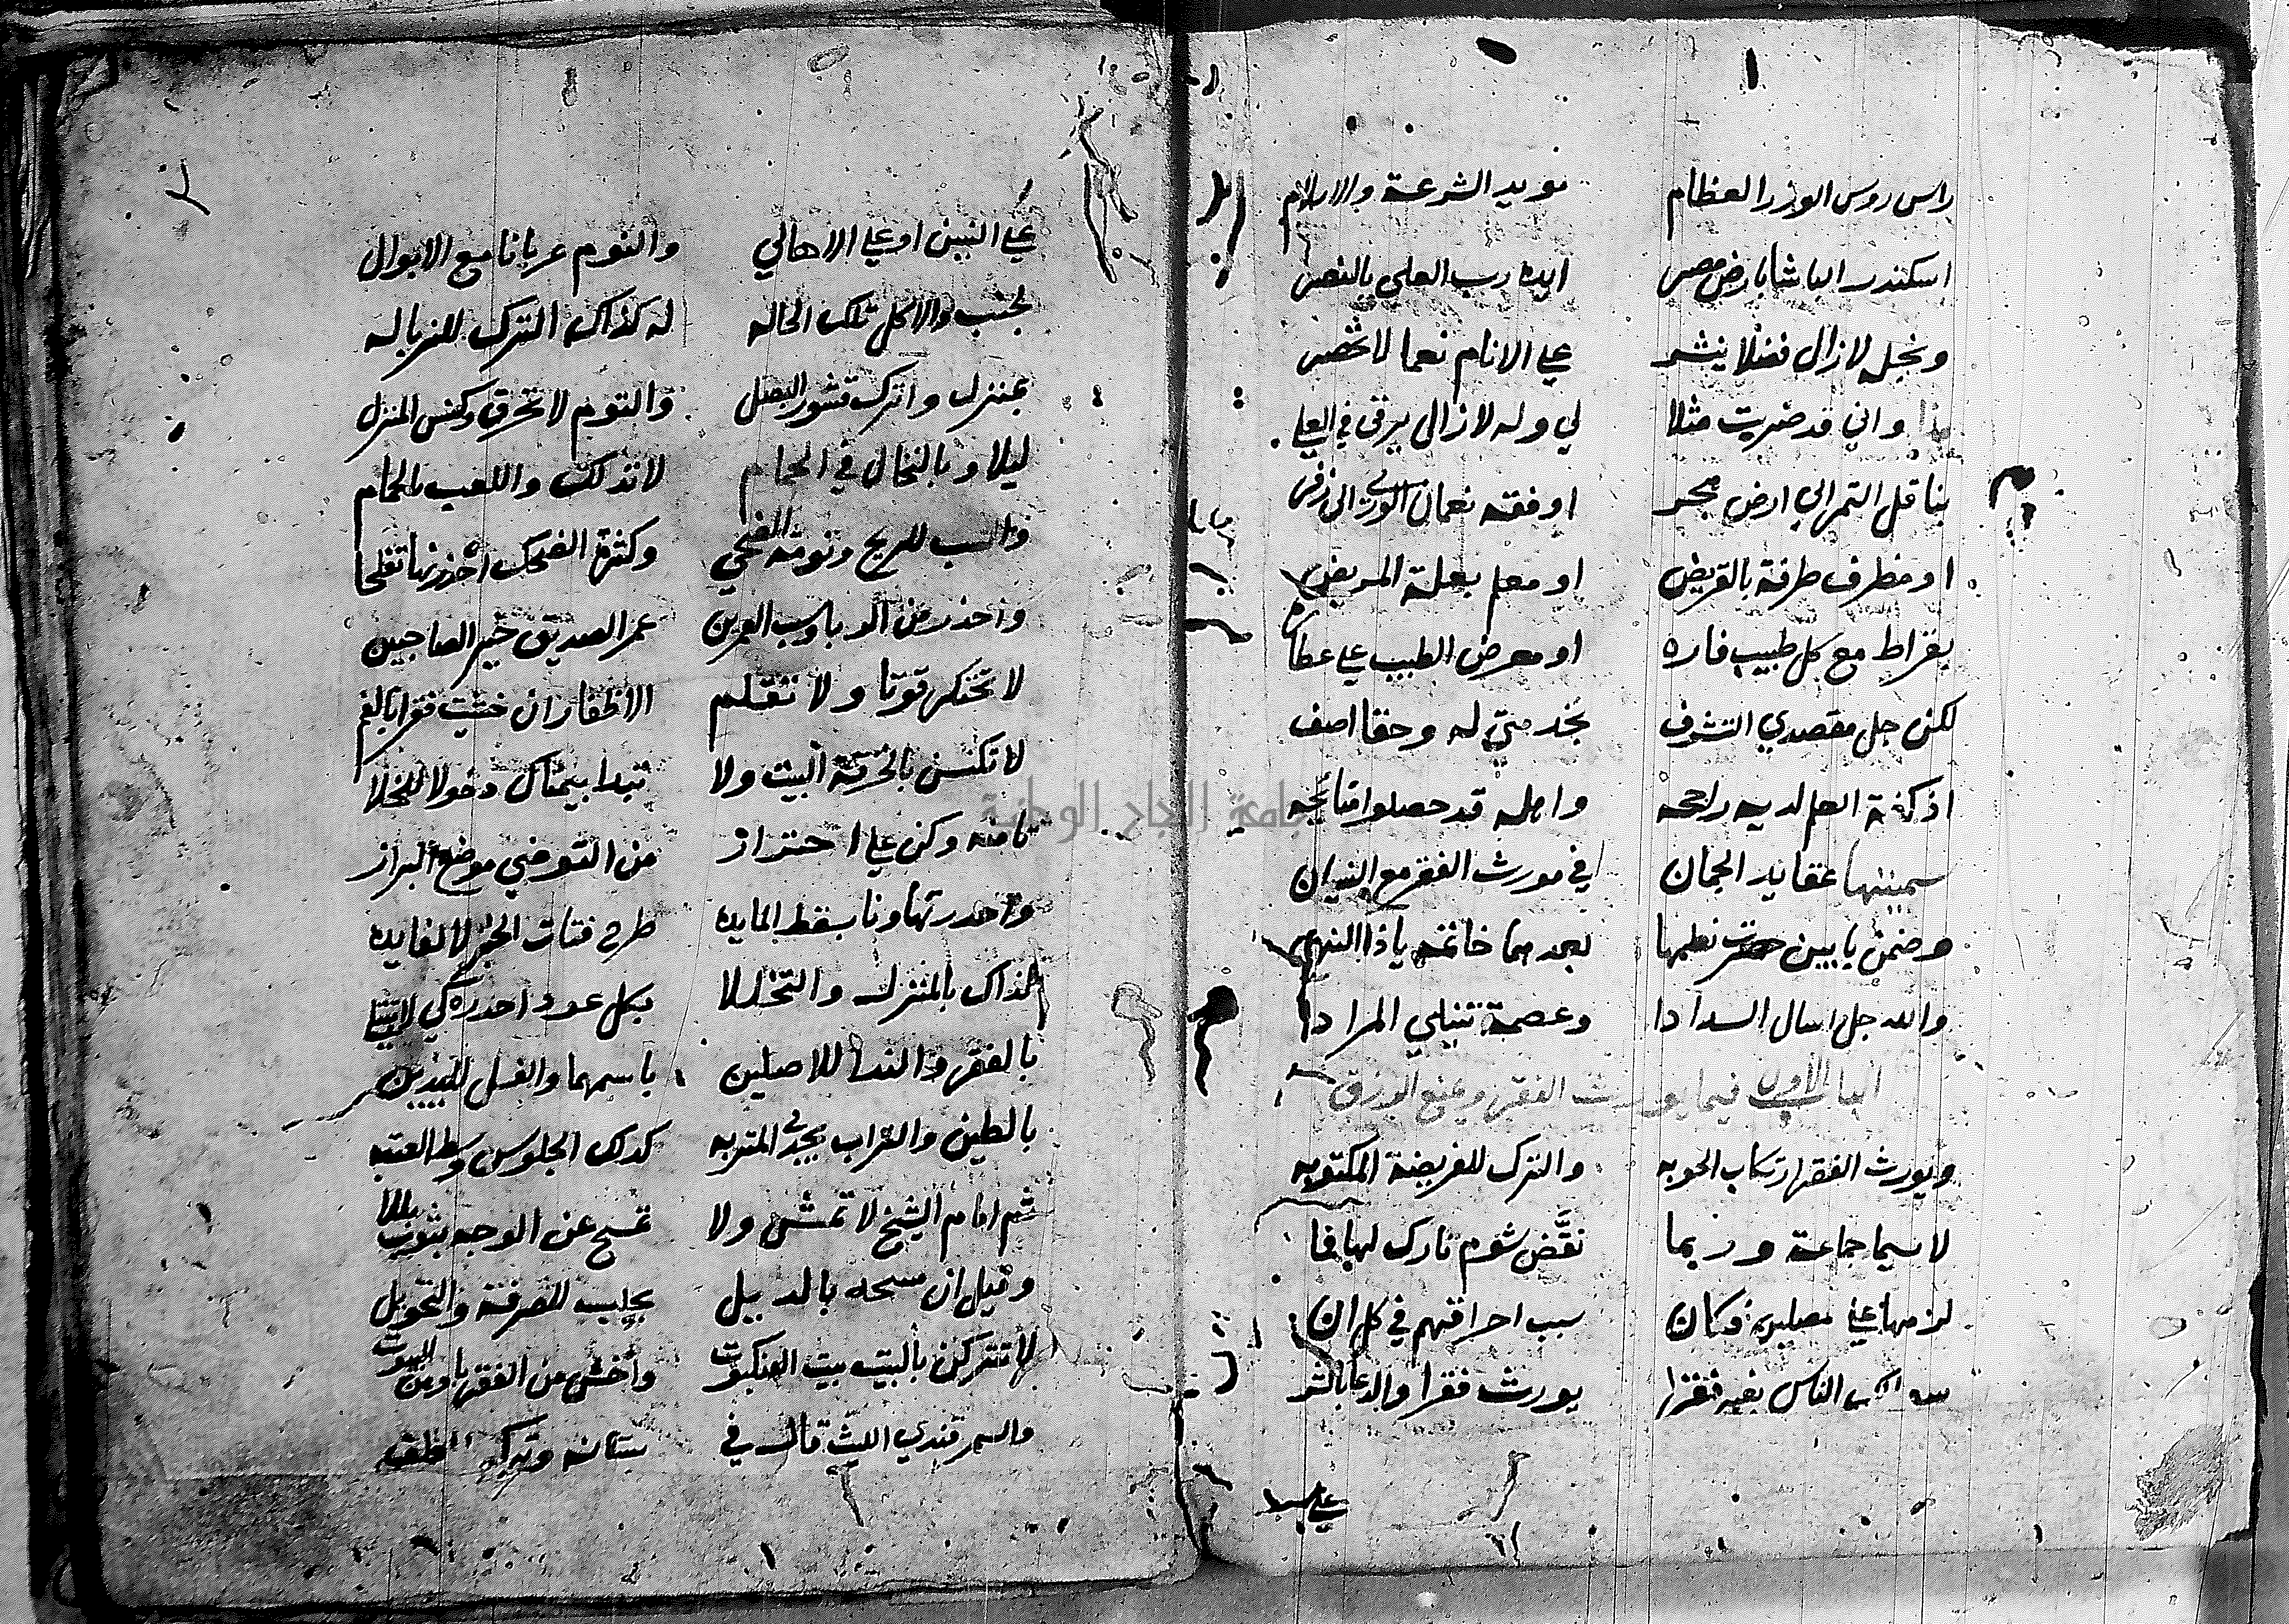 راس روس الوزر العظام مويد الشرعة والاسلام
اسكندر الباشا بارض مصر ايده رب العلي بالنصر
ونجله لازال فضلا ينشر علي الانام نعما لا تحصر
هذا واني قد ضربت مثلا لي وله لازال يرقى في العلي
بناقل التمر الي ارض هجر او فقه نعمان الوري الى زفر
او مطرف طرفة بالقريض او معلم بعلة المريض
بقراط مع كل طبيب فاره او معرض الطبيب علي عطا
لكن جل مقصدي التشرف بخدمتي له وحقا اصف
اذ كفة العلم لديه راجحه واهله قد حصلوا متاجه
سميتها عقايد الجمان في مورث الفقر مع النسيان
وضمن بابين حصرت نظمها بعدهما خاتمه ياذا النهى
والله جل اسال السدادا وعصمة تنيلني المرادا
الباب الاول فيما يورث الفقر ويمنع الرزق
ويورث الفقر ارتكاب الحوبه والترك للفريضة المكتوبه
لاسيما جماعة وربما نقض شوم تارك لها فما
لزمها علي مصليه فكان سبب احراقهم في كل ان
الناس بغير فقرا يورث فقرا والدعا بالشر
علي
٢
علي البنين او علي الاهالي والنوم عريانا مع الابوال
بجنب والاكل تلك الحاله له كذاك الترك للزباله
بمنزل واترك قشور البصل والثوم لا تحرق وكنس المنزل
ليلا وبالنخال في الحمام لا تدلك واللعب بالحمام
والسب للريح ونومة الضحي وكثرة الضحك احذرنها تفلحا
واحذر من الربا وسب العمرين عمر الصديق خير الصاحبين
لا تحتكر قوتا ولا تقلم الاظفار ان خشيت فقرا بالفم
لا تكنس بالخرقة البيت ولا تبدا بيمناك دخولا للخلا
تامنه وكن علي احتراز من التوضي موضع البراز
واحذر تهاونا بسقط المايده طرح فتات الخبز لا لفايده
لذاك بالمنزل والتخللا بكل عود احذره كي لا تبتلي
بالفقر والندا للاصلين باسمهما والغسل لليدين
بالطين والتراب يجدي المتربه كذلك الجلوس وسط العتبه
ثم امام الشيخ لا تمش ولا تمسح عن الوجه بثوب بللا
وقيل ان مسحه بالذيل يجلب للصرفة والتحويل
لا تتركن بالبيت بيت العنكبوت واخش من الفقر باوهن البيوت
والسمرقندي الليث قال في بستانه